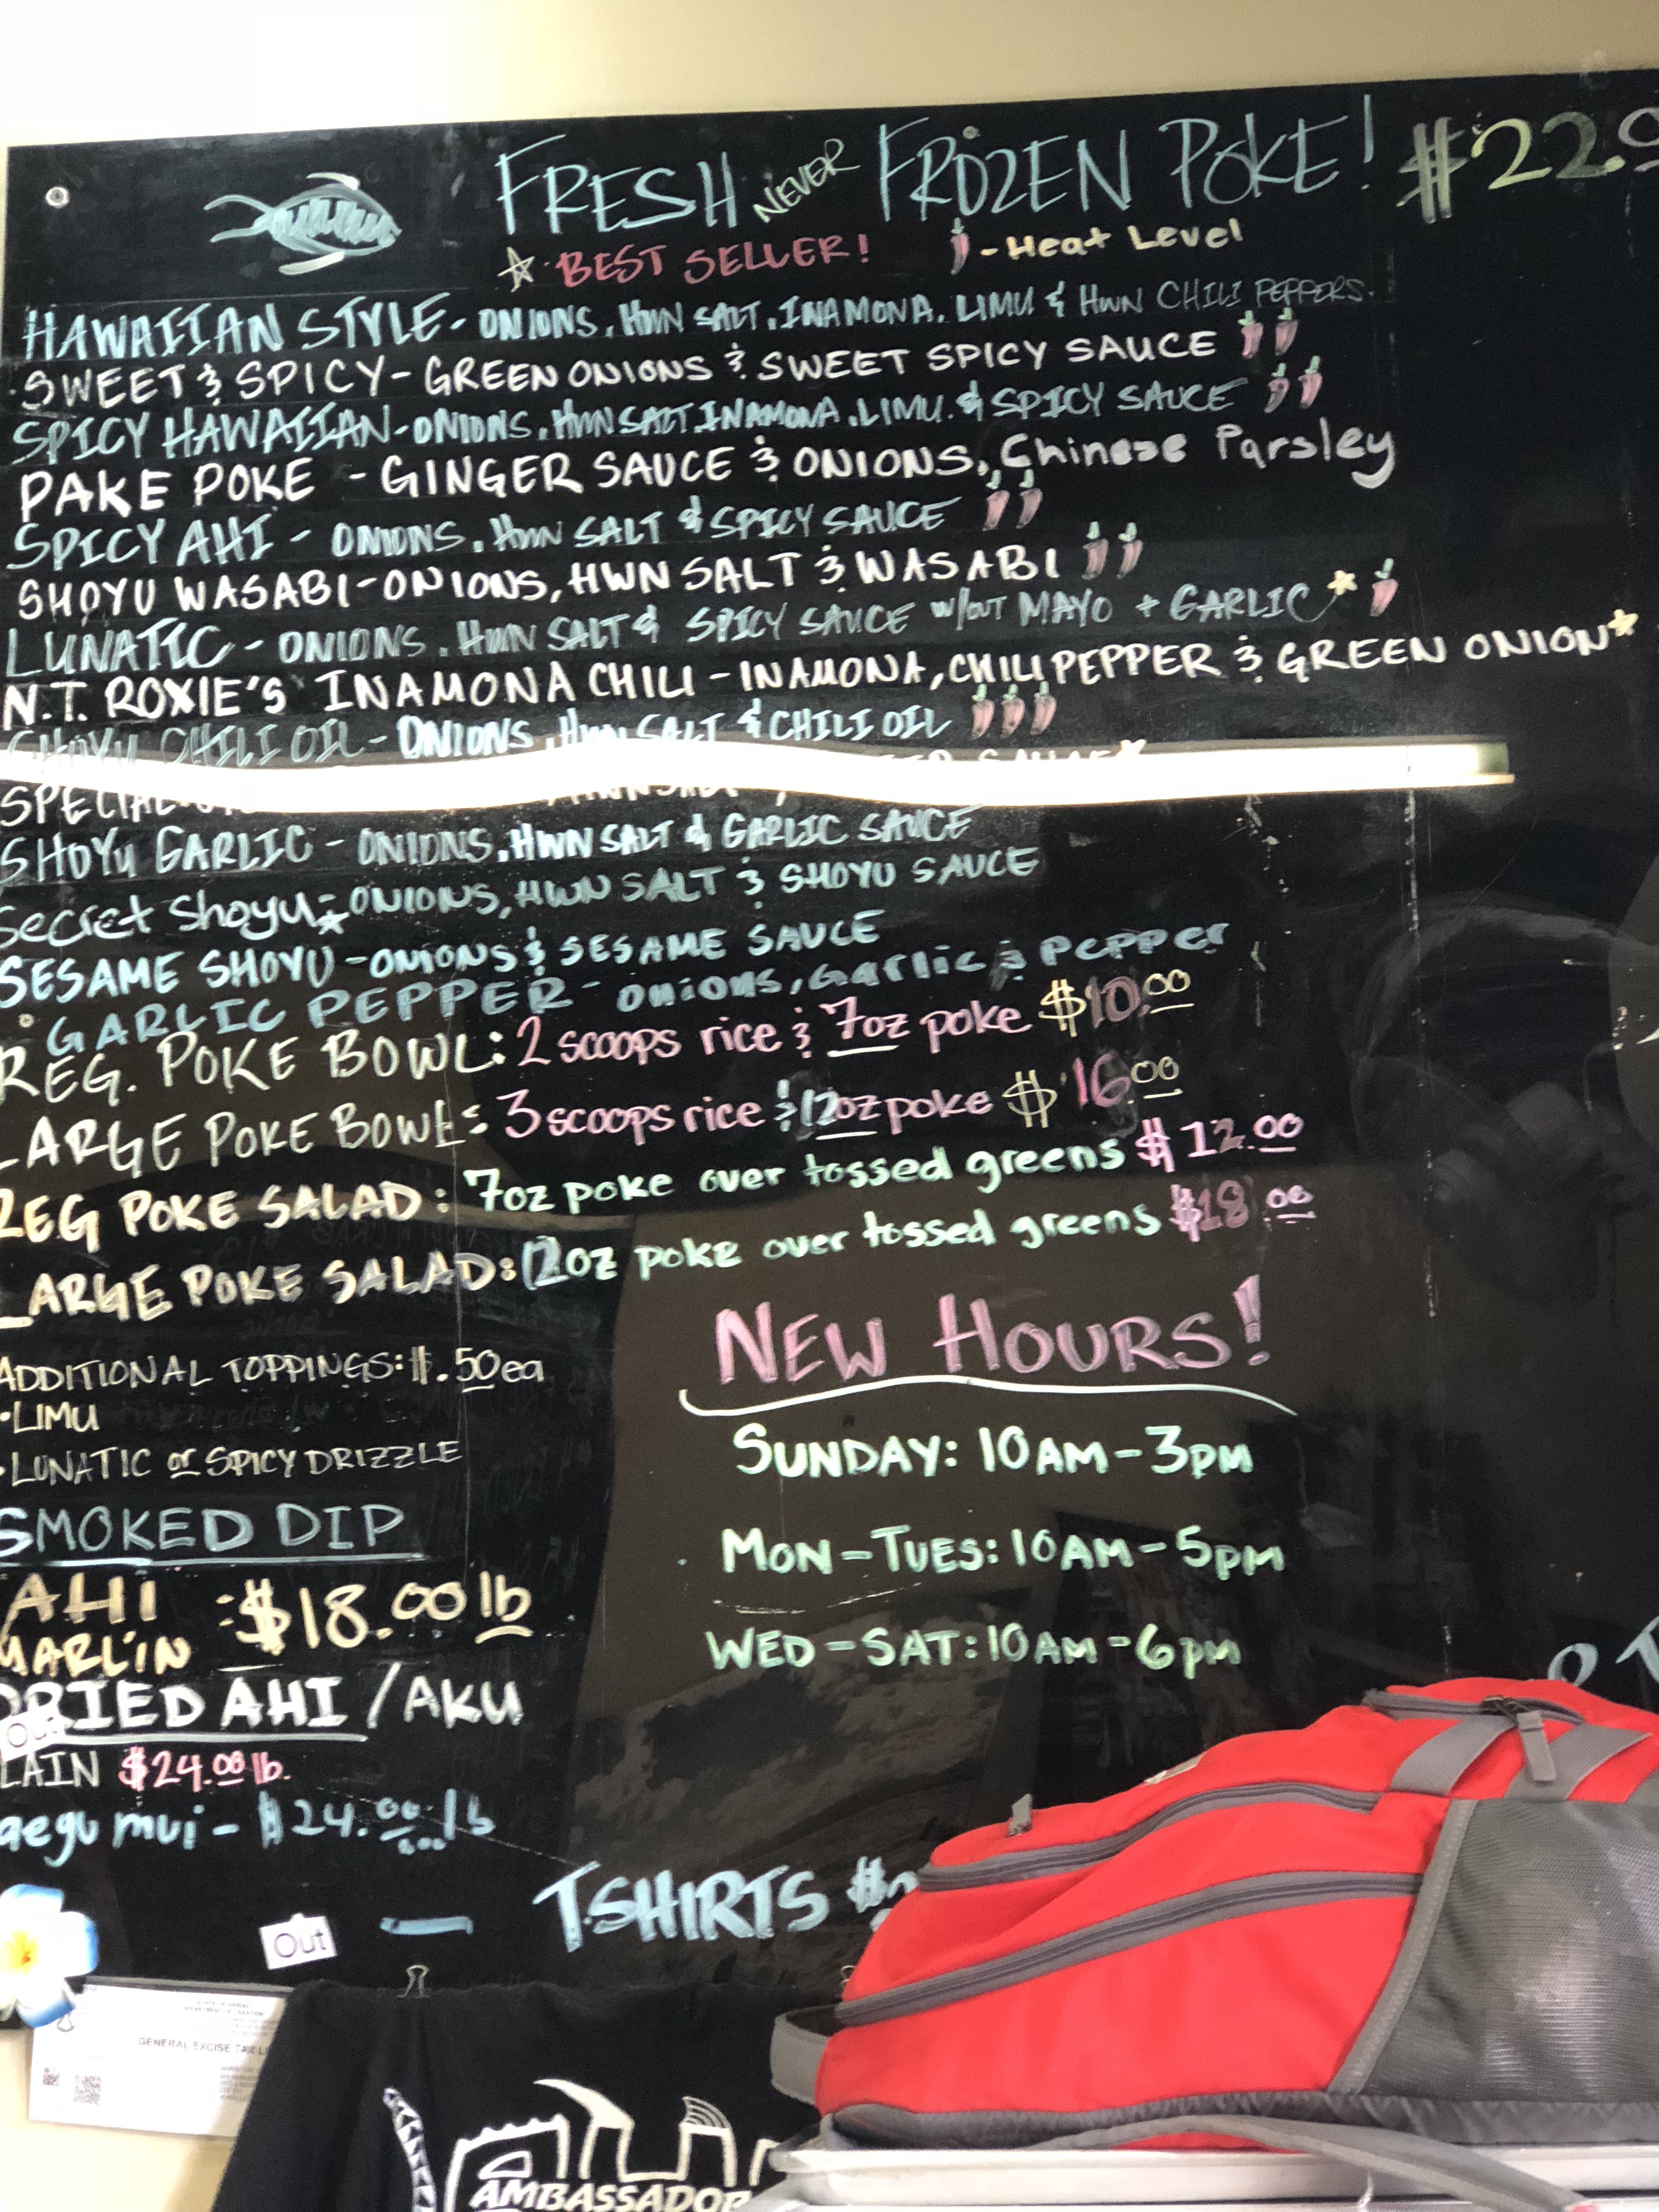 FRESH NEVER FROZEN POKE! $22.
BEST SELLER! - Heat Level
HAWAIIAN STYLE - ONIONS, HWN SALT, INAMONA, LIMU & HWN CHILI PEPPERS.
SWEET & SPICY - GREEN ONIONS & SWEET SPICY SAUCE
SPICY HAWAIIAN - ONIONS, HWN SALT, INAMONA, LIMU & SPICY SAUCE
PAKE POKE - GINGER SAUCE & ONIONS, Chinese Parsley
SPICY AHI - ONIONS, HWN SALT & SPICY SAUCE
SHOYU WASABI - ONIONS, HWN SALT & WASABI
LUNATIC - ONIONS, HWN SALT & SPICY SAUCE w/out MAYO + GARLIC
N.T. ROXIE'S INAMONA CHILI - INAMONA, CHILI PEPPER & GREEN ONION
SHOYU CHILI OIL - ONIONS, HWN SALT & CHILI OIL
SPECIAL
SHOYU GARLIC - ONIONS, HWN SALT & GARLIC SAUCE
Secret Shoyu - ONIONS, HWN SALT & SHOYU SAUCE
SESAME SHOYU - ONIONS & SESAME SAUCE
GARLIC PEPPER - onions, Garlic & Pepper
REG. POKE BOWL: 2 scoops rice & 7oz poke $10.00
LARGE POKE BOWL: 3 scoops rice & 12oz poke $16.00
REG POKE SALAD: 7oz poke over tossed greens $12.00
LARGE POKE SALAD: 12oz poke over tossed greens $18.00
ADDITIONAL TOPPINGS: $.50ea
• LIMU
• LUNATIC or SPICY DRIZZLE
SMOKED DIP
AHI
MARLIN : $18.00 lb
DRIED AHI / AKU
Out
LAIN $24.00 lb.
aegu mui - $24.00 lb
NEW HOURS!
SUNDAY: 10AM - 3PM
MON - TUES: 10AM - 5PM
WED - SAT: 10AM - 6PM
TSHIRTS $
Out
GENERAL EXCISE TAX
AMBASSADOR